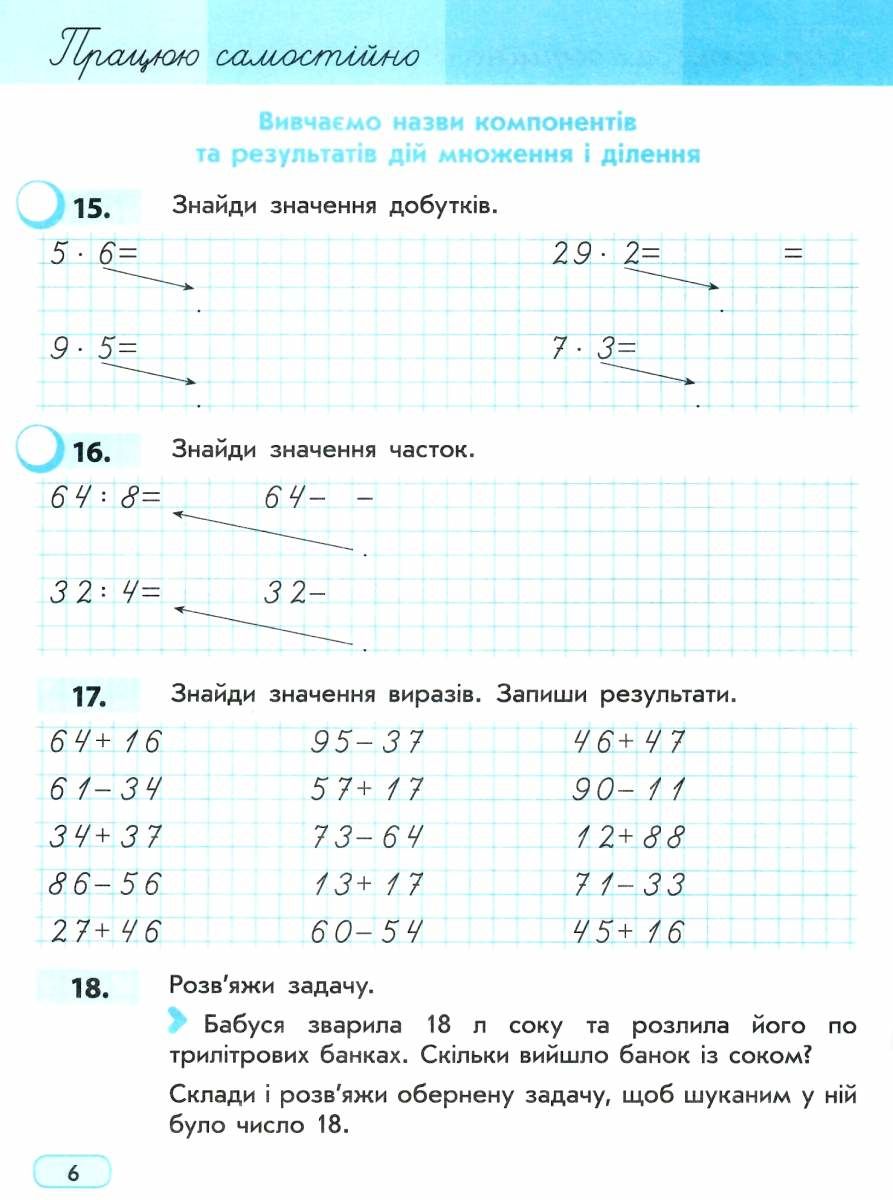 Працюю самостійно
Вивчаємо назви компонентів
та результатів дій множення і ділення
15. Знайди значення добутків.
5 · 6= 29 · 2= =
. .
9 · 5= 7 · 3=
. .
16. Знайди значення часток.
64 : 8= 64– –
.
32 : 4= 32–
.
17. Знайди значення виразів. Запиши результати.
64+16 95–37 46+47
61–34 57+17 90–11
34+37 73–64 12+88
86–56 13+17 71–33
27+46 60–54 45+16
18. Розв'яжи задачу.
Бабуся зварила 18 л соку та розлила його по
трилітрових банках. Скільки вийшло банок із соком?
Склади і розв'яжи обернену задачу, щоб шуканим у ній
було число 18.
6